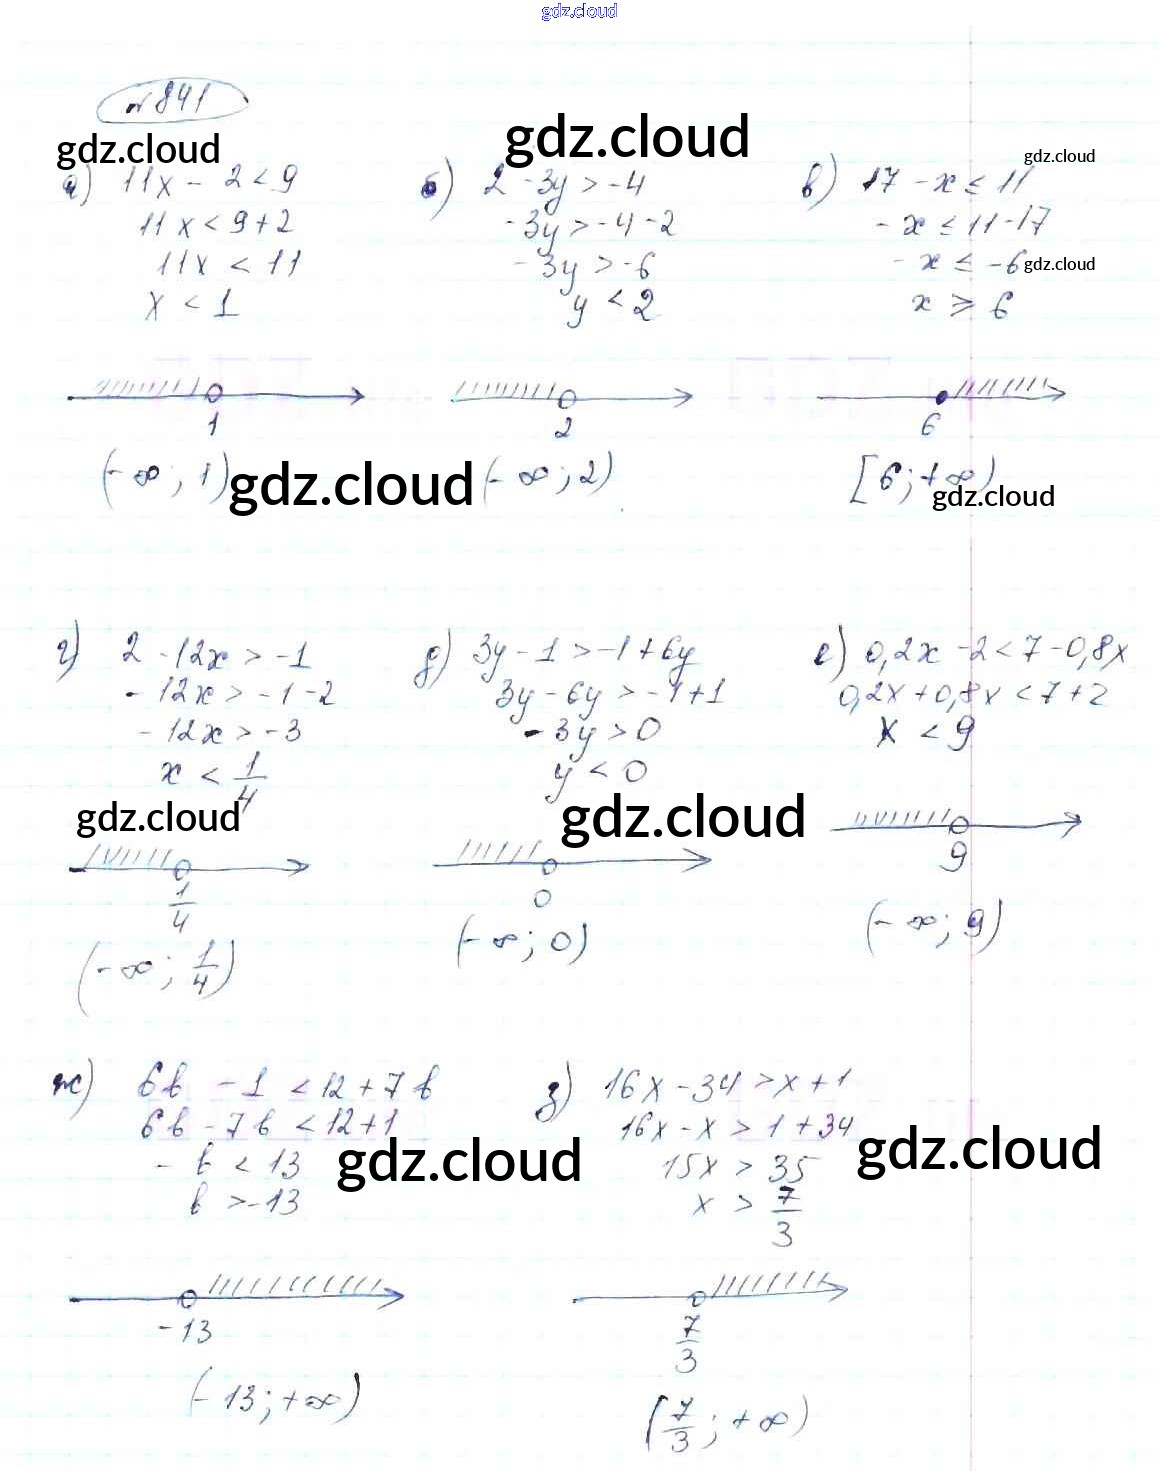 gdz.cloud
№841
gdz.cloud gdz.cloud gdz.cloud
а) 11x - 2 < 9 б) 2 - 3y > -4 в) 17 - x ≤ 11
11x < 9 + 2 -3y > -4 - 2 -x ≤ 11 - 17
11x < 11 -3y > -6 -x ≤ -6 gdz.cloud
x < 1 y < 2 x ≥ 6
1 2 6
(-∞; 1) gdz.cloud (-∞; 2) [6; +∞) gdz.cloud
г) 2 - 12x > -1 д) 3y - 1 > -1 + 6y е) 0,2x - 2 < 7 - 0,8x
-12x > -1 - 2 3y - 6y > -1 + 1 0,2x + 0,8x < 7 + 2
-12x > -3 -3y > 0 x < 9
x < 1/4 y < 0
gdz.cloud gdz.cloud
1/4 0 9
(-∞; 1/4) (-∞; 0) (-∞; 9)
ж) 6b - 1 < 12 + 7b з) 16x - 34 > x + 1
6b - 7b < 12 + 1 16x - x > 1 + 34
gdz.cloud gdz.cloud
-b < 13 15x > 35
b > -13 x > 7/3
-13 7/3
(-13; +∞) (7/3; +∞)